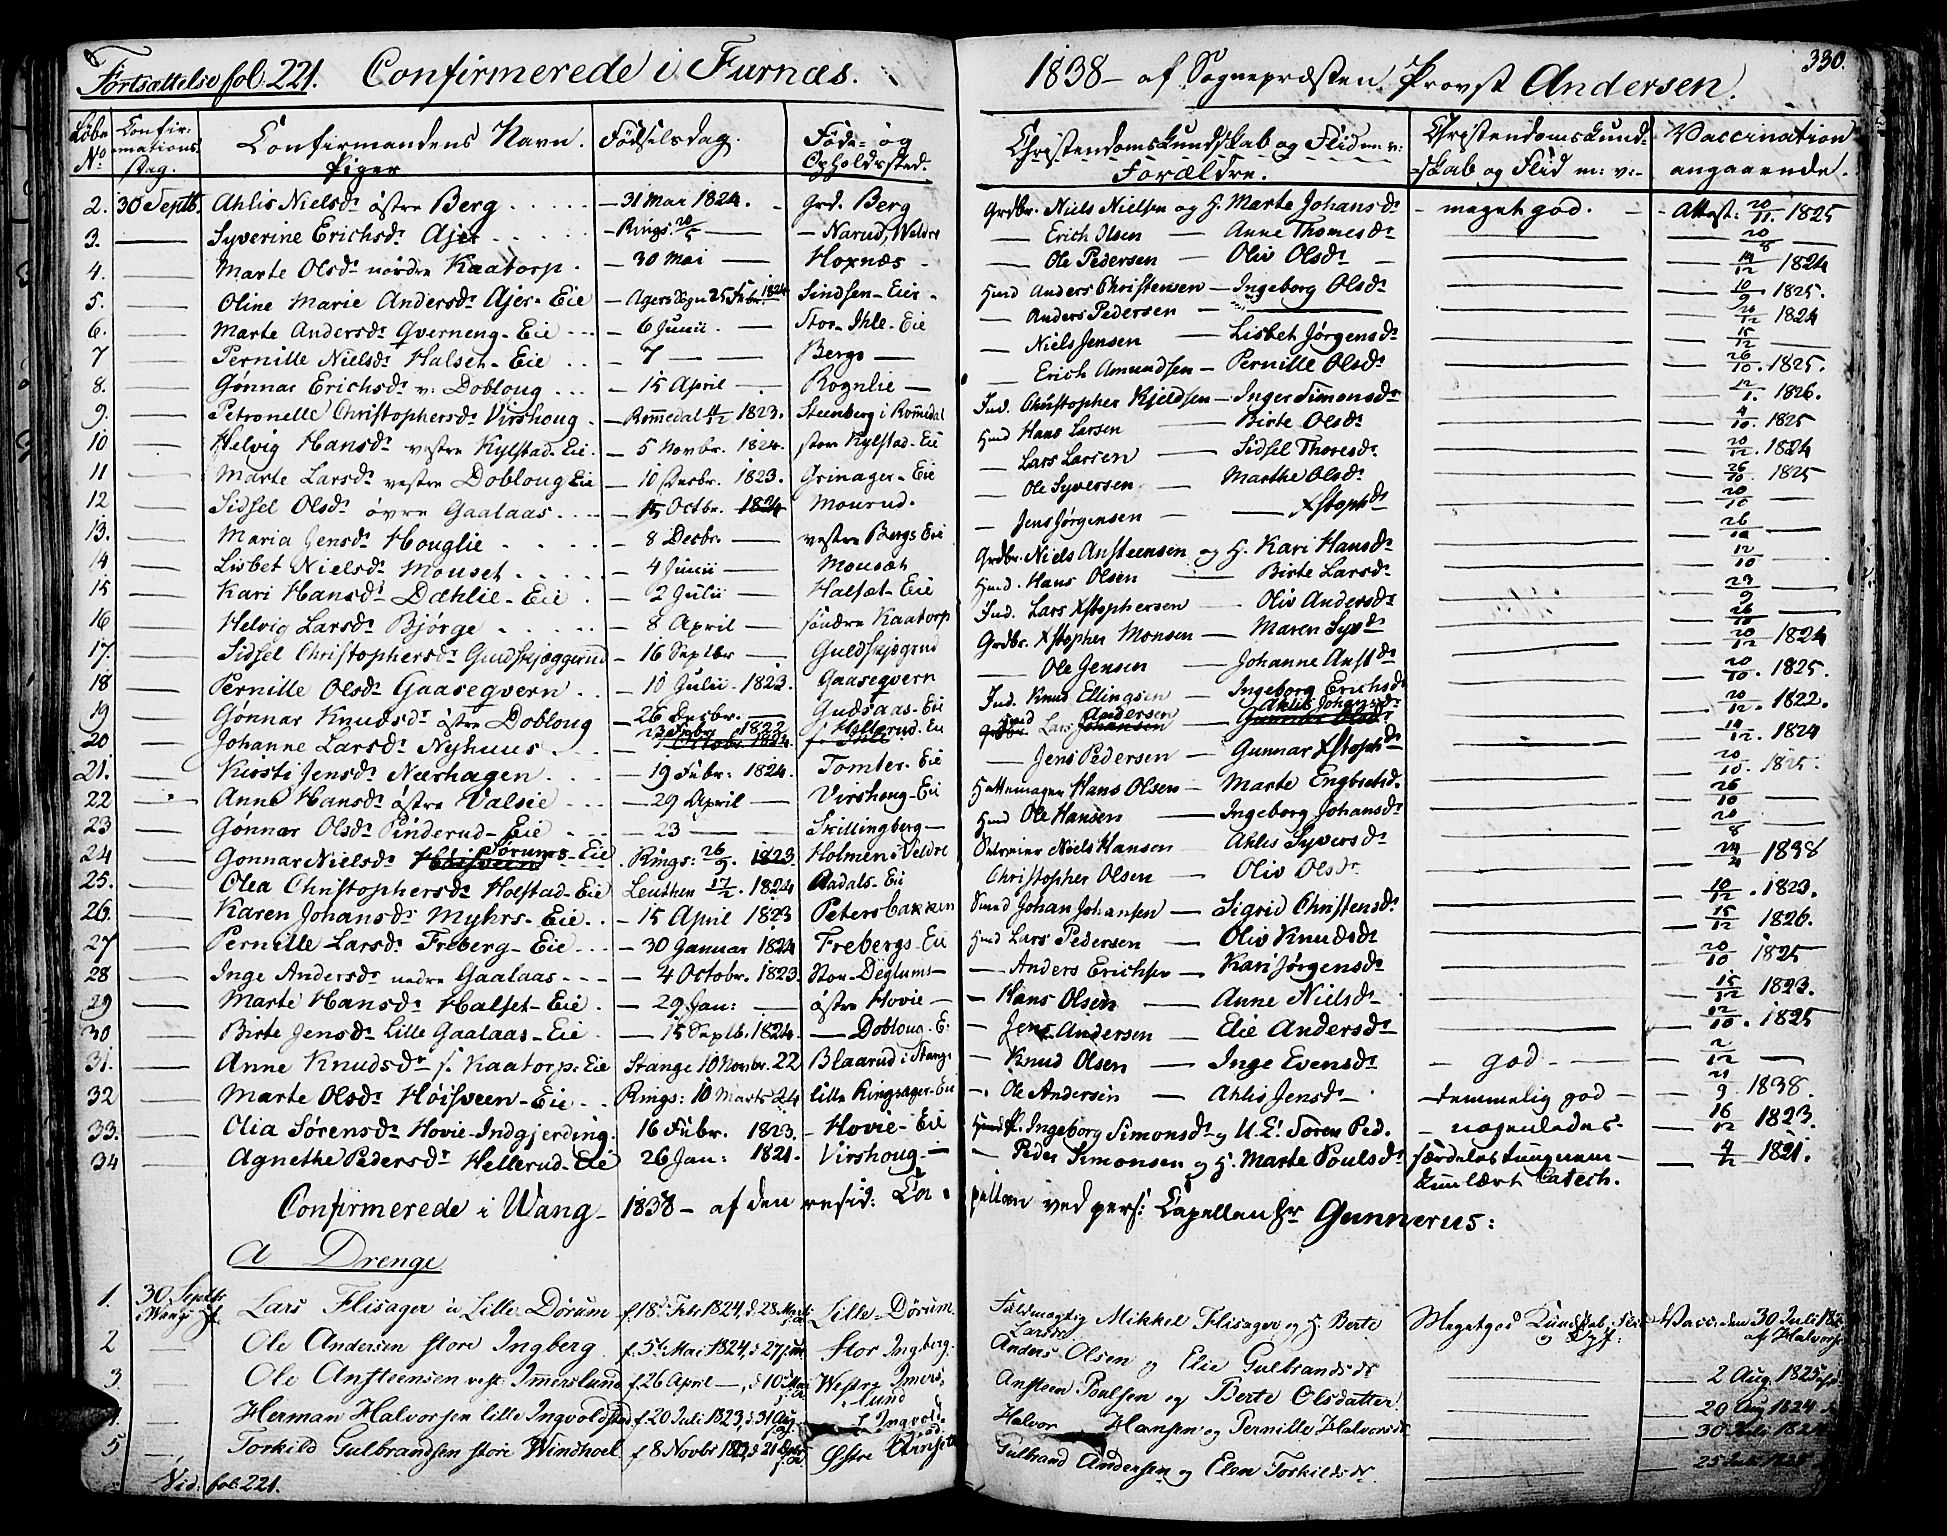 Fortsættelse fol. 221. Confirmerede i Furnæs. 1838 - af Sognepræsten Provst Andersen. 330.
Løbe No. Confirmations Dag. Confirmandens Navn. Piger Fødselsdag. Føde- og Opholdssted. Christendomskundskab og Flid m: v: Forældre. Christendomskundskab og Flid m: v:- Vaccination angaaende.
2. 30 Septb. Ahlis Nielsdr østre Berg - 31 Mai 1824. Grd. Berg Grdbr. Niels Nielsen og H. Marte Johansdr - meget god. - Attest: 20/11. 1825
3. Syverine Erichsdr Ajer - Rings. 20/5 - Narud, Veldre Erich Olsen - Anne Thomesdr 20/8
4. Marte Olsdr nordre Kaatorp - 30 Mai Hoxnæs Ole Pedersen - Oliv Olsdr 14/12 1824
5. Oline Marie Andersdr Ajer - Eie - Agers Sogn 25 Febr. 1824 Sindsen - Eier Husd Anders Christensen - Ingeborg Olsdr 10/9 1825.
6. Marte Andersdr Qverneng - Eie - 6 Junii Stor - Ihle - Eie Anders Pedersen 20/12 1824
7 Pernille Nielsdr Halset - Eie - 7 Bergs Niels Jensen - Lisbet Jørgensdr 15/12
8. Gønnar Erichsdr v: Dobloug - 15 April Rognlie Erich Amundsen - Pernille Olsdr 26/10. 1825.
9. Petronelle Christophersdr Virshoug - Romedal 11/12 1823. Steenberg i Romedal Ind. Christopher Kjeldsen - Inger Simonsdr 12/1. 1826.
10 Helvig Hansdr vestre Kylstad - Eie - 5 Novbr. 1824. store Kylstad - Eie Husd Hans Larsen - Birte Olsdr 4/10. 1825
11 Marte Larsdr vestre Dobloug Eie - 10 Decbr. 1823. Grinager - Eie Lars Larsen - Sidsel Thoresdr 20/12. 1824
12 Sidsel Olsdr øvre Gaalaas - 15 Octbr. 1824 Mourud. Ole Syversen - Marthe Olsdr 26/10. 1825
13. Maria Jensdr Houglie - 8 Decbr. vestre Bergs Eie Jens Jørgensen - Xstophdr 20/10
14 Lisbet Nielsdr Mouset - 4 Junii Mousæt Grdbr. Niels Ansteensen og H. Kari Hansdr 26/10
15 Kari Hansdr Dæhlie - Eie - 2 Julii Halsæt - Eie Husd. Hans Olsen - Birte Larsdr 12/10
16 Helvig Larsdr Bjørge - 8 April søndre Kaatorp Ind. Lars Xstophersen - Oliv Andersdr 23/9
17. Sidsel Christophersdr Guldskjæggerud - 16 Septbr Guldskjægrud Grdbr. Xstopher Monsen - Maren Syvdr 26/10
18 Pernille Olsdr Gaaseqvern - 10 Julii 1823. Gaaseqvern Ole Jensen - Johanne Anstdr 20/12 1824
19 Gønnar Knudsdr østre Dobloug - 26 Decbr. Gudsaas - Eie Ind. Knud Ellingsen - Ingeborg Erichsdr 20/10. 1825.
20 Johanne Larsdr Nyhuus 1822 Hellerud - Eie Husd Lars Andersen - Ahlis Johansdr 20/12. 1822.
21. Kirsti Jensdr Nærhagen - 19 Febr: 1824. Tomter - Eie Jens Pedersen - Gunnar Xstophdr 14/12. 1824
22 Anne Hansdr østre Valsie - 29 April Virshoug - Eie Hattemager Hans Olsen - Marte Engbretsdr 20/10. 1825.
23 Gønnar Olsdr Pinderud - Eie - 23 Skillingberg Husd Ole Hansen - Ingeborg Johansdr 26/10
24 Gonnar Nielsdr Sørums - Eie Rings: 26/9. 1823 Holmen i Veldre Niels Hansen - Ahlis Syversdr 20/8
25. Olea Christophersdr Holstad - Eie Leuthen 17/2. 1824 Aadals - Eie Christopher Olsen - Oliv Olsdr 1838
26. Karen Johansdr Myhrs - Eie - 15 April 1823 Petersbakken Smed Johan Johansen - Sigrid Christensdr 10/12. 1823.
27 Pernille Larsdr Freberg - Eie - 30 Januar 1824 Frebergs - Eie Husd Lars Pedersen - Oliv Knudsdr 15/12 1826.
28 Inge Andersdr nedre Gaalaas - 4 Octobr. 1823. Stor - Deglums - Anders Erichsen - Kari Jørgensdr 20/10 1825
29 Marte Hansdr Halset - Eie - 29 Jan: østre Hovie - Hans Olsen - Anne Nielsdr 15/12 1823.
30 Birte Jensdr Lille Gaalaas - Eie - 15 Septb. 1824. Dobloug - E. - Jens Andersen - Elie Andersdr 12/10. 1825
31. Anne Knudsdr s. Kaatorp: Eie Stange 10 Novbr. 22 Blaarud i Stange - Knud Olsen - Inge Evensdr - god - 2/12
32 Marte Olsdr Høisveen - Eie Rings: 10 Marts 24 lille Ringsager - Eie - Ole Andersen - Ahlis Jensdr - temmelig god - 21/9 1838.
33. Olia Sørensdr Hovie - Indgjerding. 16 Febr. 1823. - Hovie - Eie Ingeborg Simonsdr og U. E. Søren Ped. - nogenledes - 16/12 1823.
34 Agnethe Pedersdr Hellerud - Eie 26 Jan: 1821. Virshoug - Peder Simonsen og H. Marte Poulsdr særdeles tungnem - kun lært Catech. 4/12 1821.
Confirmerede i Wang - 1838 - af den resid: Capellan ved pers: Capellan Hr Gunnerus:
A Drenge
1. 30 Septbr i Wang Lars Flisager u Lille Dørum f. 18 Febr 1824, d. 28 Marts Lille - Dørum. Fuldmægtig Mikkel Flisager og H. Berte Larsdr Meget god Kundskab, Flid og Vacc. den 30 Juli af Halvorsen
2 Ole Andersen store Ingberg f. 5 Mai 1824, d 27 Stor Ingberg. Anders Olsen og Elie Gulbrandsdr
3 Ole Ansteensen vest. Imerslund f 26 April Westre Imerslund Ansteen Poulsen og Berte Olsdatter 2 Aug. 1825
4. Herman Halvorsen lille Ingvoldstad f 20 Juli 1823, d 31 Aug. Halvor Hansen og Pernille Halvorsdr 20 Aug 1824
5 Torkild Gulbrandsen store Windhoel f 8 Novbr Østre Gulbrand Andersen og Elen Torkildsdr 30 Juli
Vid. fol. 221.